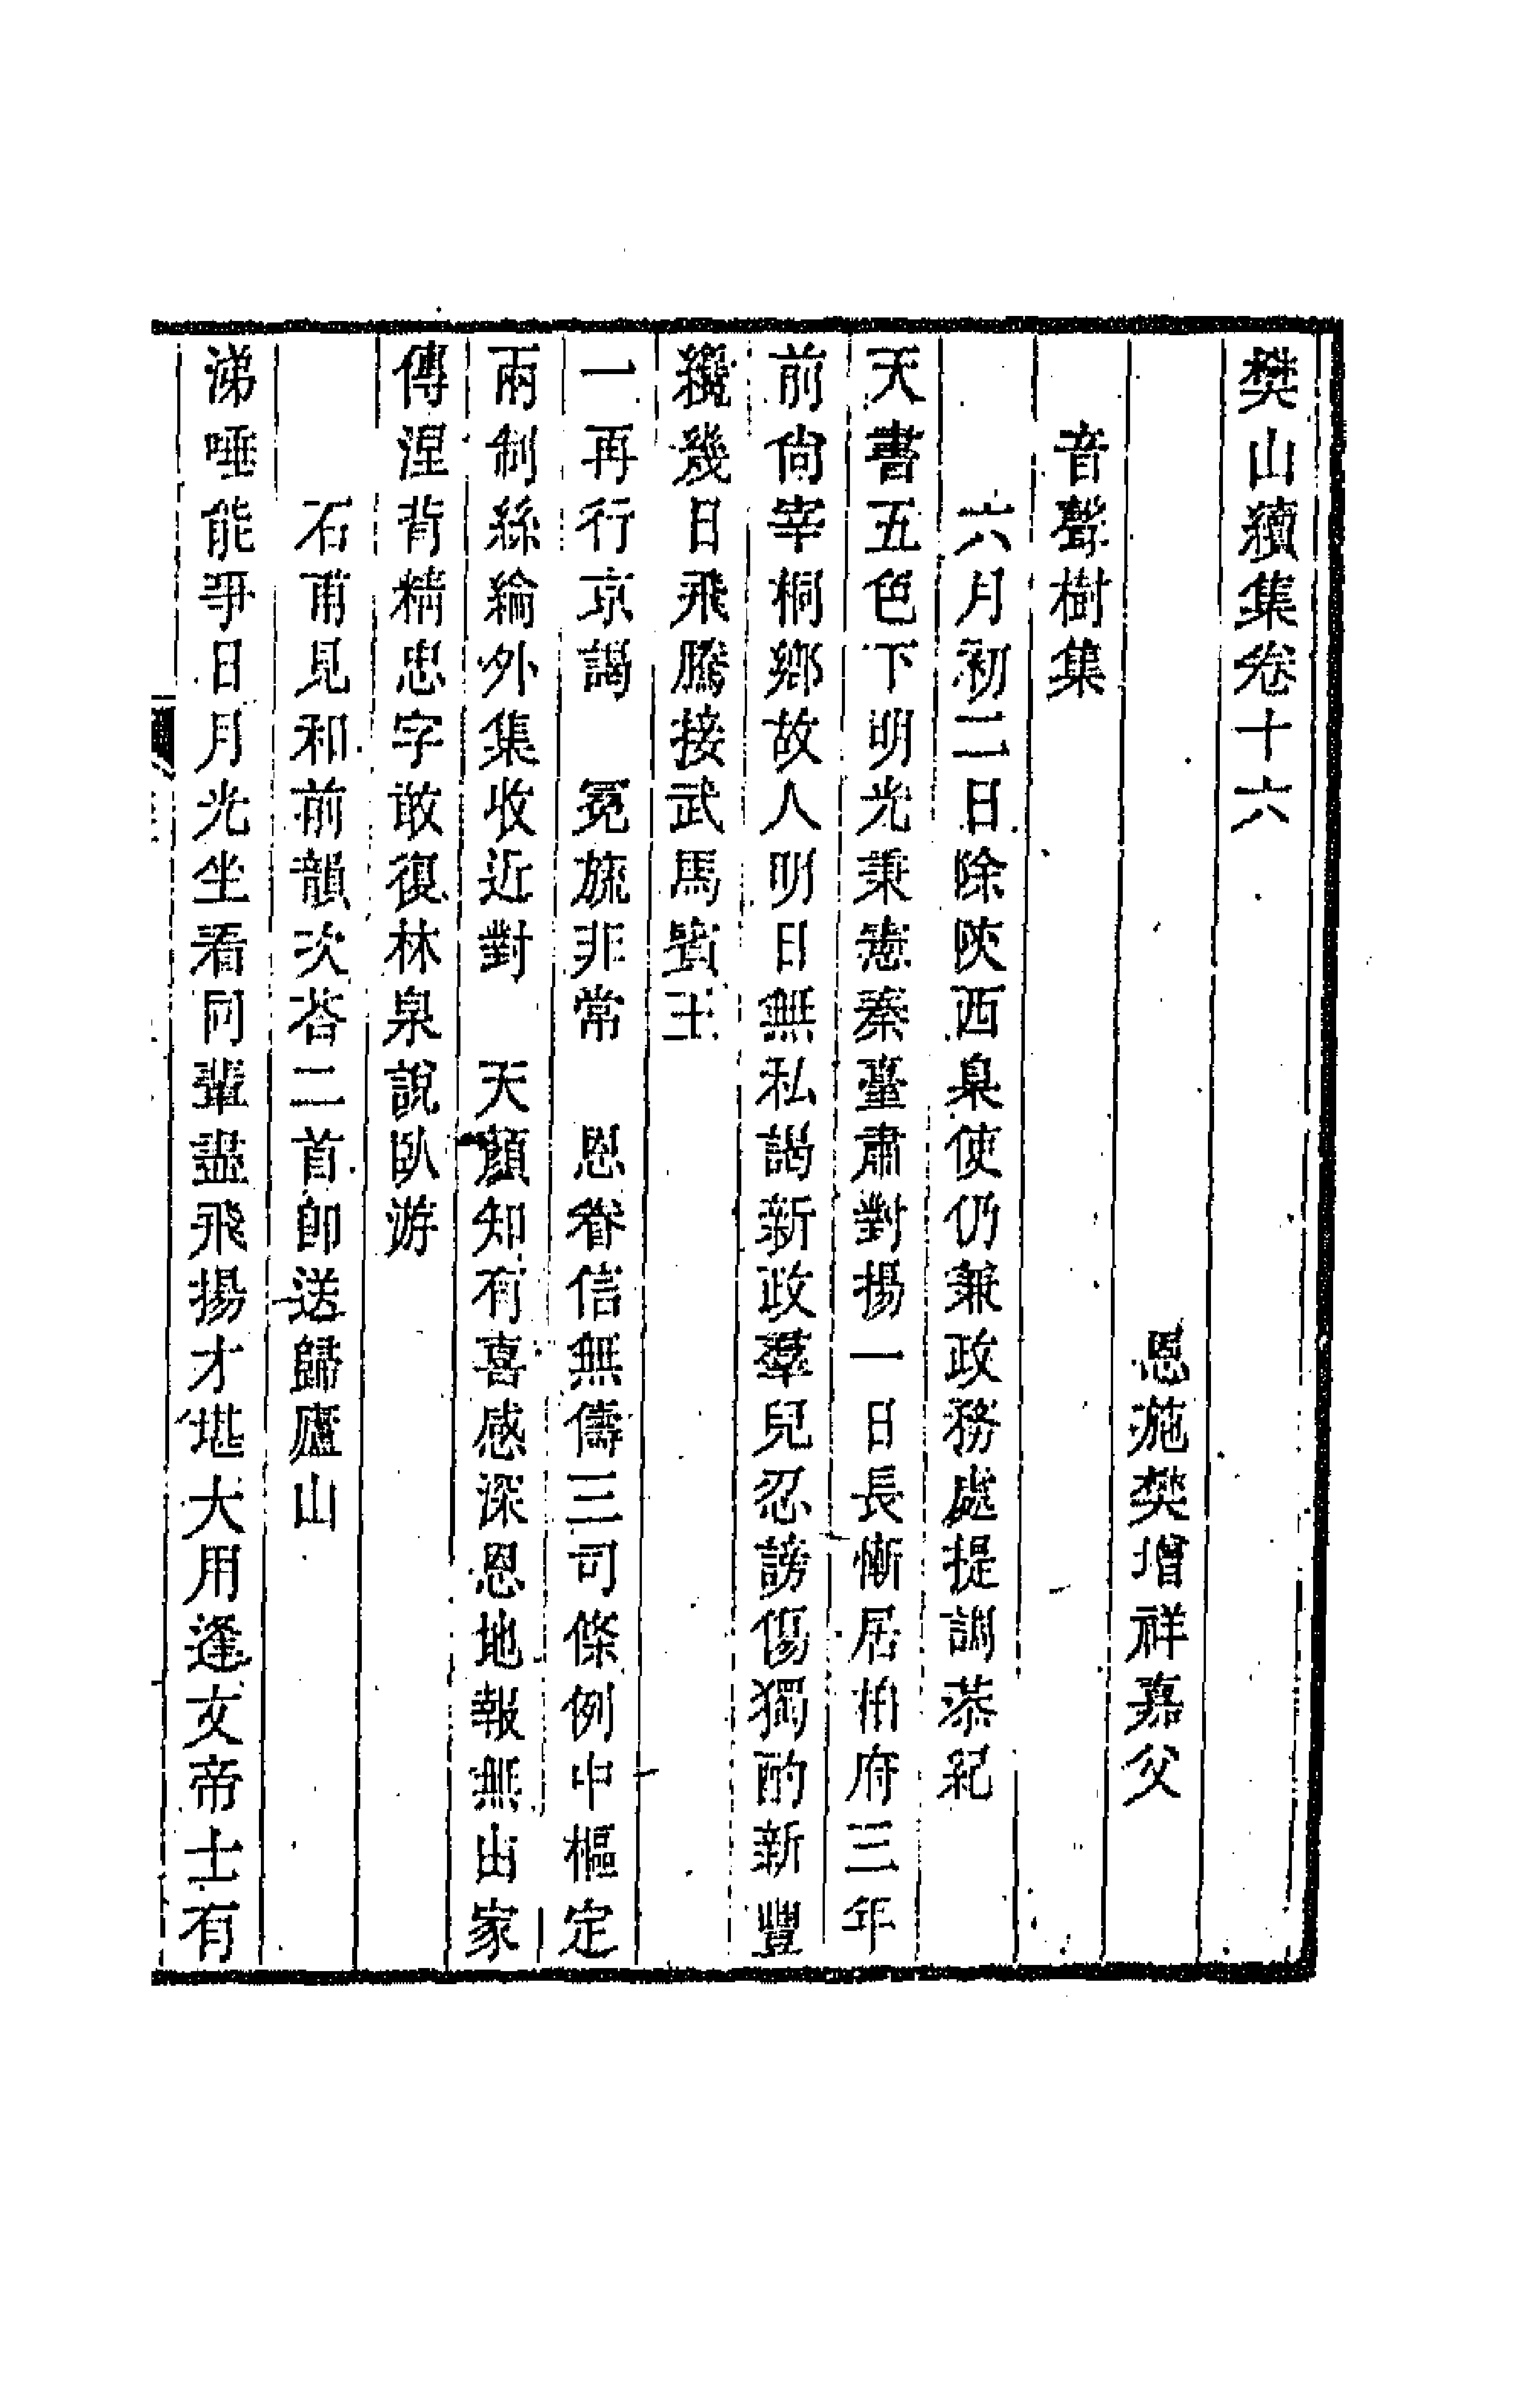 樊山續集卷十六
恩施樊增祥嘉父
音聲樹集
六月初二日除陝西臬使仍兼政務處提調恭紀
天書五色下明光秉憲秦臺肅對揚一日長慚居柏府三年
前尚宰桐鄉故人明日無私謁新政羣兒忍謗傷獨酌新豐
纔幾日飛騰接武馬賓王
一再行京謁　冕旒非常　恩眷信無儔三司條例中樞定
兩制絲綸外集收近對　天顏知有喜感深恩地報無由家
傳涅背精忠字敢復林泉說臥游
石甫見和前韻次答二首卽送歸廬山
涕唾能爭日月光坐看同輩盡飛揚才堪大用逢文帝士有